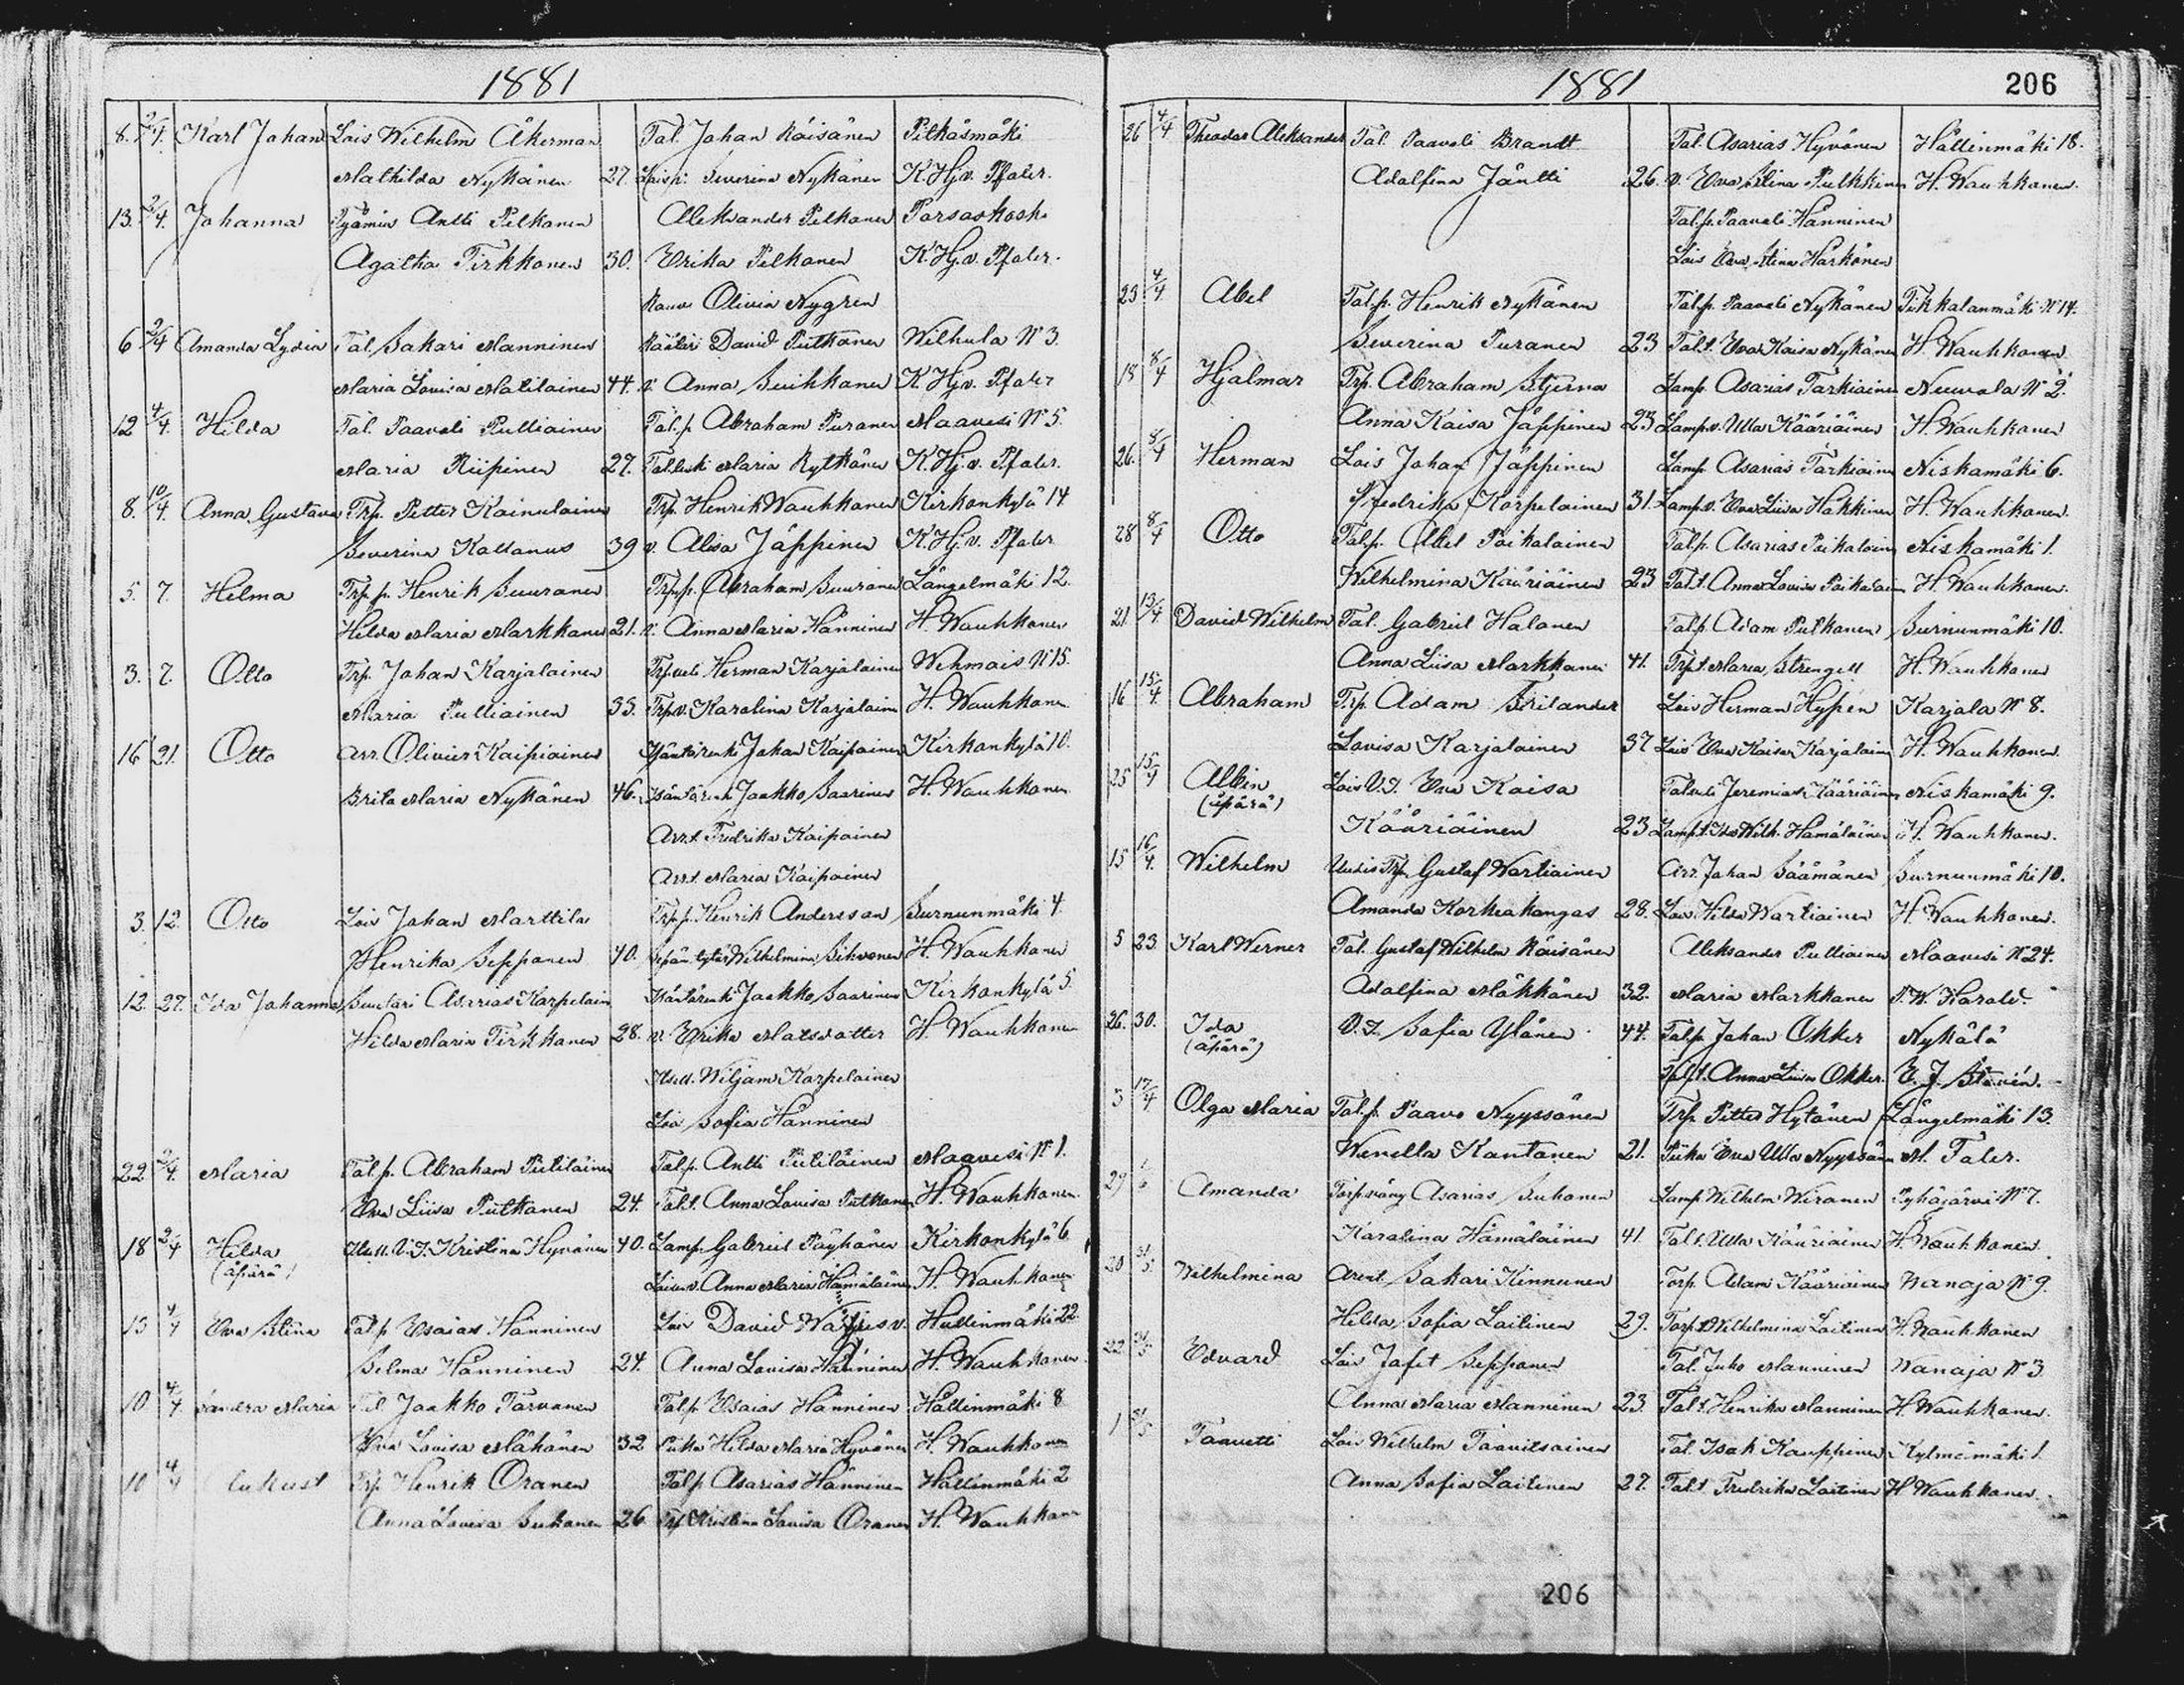 1881
8. 2/4. Karl Johan Lois Wilhelm Åkerman Tal. Johan Räisänen Pitkäsmäki
Mathilda Nykänen 27. Severina Nykänen K. Hj. v. Pfaler.
13. 2/4. Johanna Antti Pelkonen Aleksander Pelkonen Parsaskoski
Agatha Tirkkonen 30. Erika Pelkonen K. Hj. v. Pfaler.
Olivia Nygren
6 2/4 Amanda Lydia Tal. Sakari Manninen Räätäri David Putkonen Wilhula N° 3.
Maria Lovisa Matilainen 44. v. Anna Suihkonen K. Hj. v. Pfaler
12 4/4. Hilda Tal. Paavali Pulliainen Tal. p. Abraham Puranen Maavesi N° 5.
Maria Riipinen 27. Tal. leski Maria Rytkönen K. Hj. v. Pfaler.
8. 10/4. Anna Gustava Trp. Petter Kainulainen Trp. Henrik Wauhkonen Kirkonkylä 14
Severina Kallanus 39 v. Alisa Jäppinen K. Hj. v. Pfaler
5. 7. Helma Trp. p. Henrik Suuronen Trp. p. Abraham Suuronen Längelmäki 12.
Hilda Maria Markkanen 21. v. Anna Maria Hänninen H. Wauhkonen
3. 7. Otto Trp. Johan Karjalainen Trp. veli Herman Karjalainen Wehmais N° 15.
Maria Pulliainen 33. Trp. v. Karolina Karjalainen H. Wauhkonen
16 21. Otto Arr. Olivier Kaipiainen Johan Kaipainen Kirkonkylä 10.
Brita Maria Nykänen 46. Jaakko Saarinen H. Wauhkonen.
Arr. t. Fredrika Kaipainen
Arr. t. Maria Kaipainen
3. 12. Otto Lois Johan Marttila Trp. p. Henrik Andersson Surnunmäki 4.
Henrika Seppänen 40. Wilhelmina Sihvonen H. Wauhkonen
12. 27. Ida Johanna Suutari Asarias Karpelain Jaakko Saarinen Kirkonkylä 5.
Hilda Maria Tirkkonen 28. v. Erika Matsdotter H. Wauhkonen
Itsell. Wiljam Karpelainen
Lois Sofia Hänninen
22 2/4. Maria Tal. p. Abraham Piitiläinen Tal. p. Antti Piitiläinen Maavesi N° 1.
Eva Liisa Putkonen 24. Tal. t. Anna Lovisa Putkonen H. Wauhkonen.
18 2/4 Hilda Itsell. V. J. Kristina Hyvönen 40. Lamp. Gabriel Päykönen Kirkonkylä 6.
(äpärä) Anna Maria Hämäläinen H. Wauhkonen
13 4/4 Eva Stina Tal. p. Esaias Hänninen Lois David Hallinmäki 22.
Selma Hänninen 24. Anna Lovisa Hänninen H. Wauhkonen.
10 4/4 Sandra Maria Tal. Jaakko Tarvonen Tal. p. Esaias Hänninen Hällinmäki 8
Eva Lovisa Mähönen 32 Piika Hilda Maria Hyvönen H. Wauhkonen
10 4/4 Aukust Trp. Henrik Oranen Tal. p. Asarias Hänninen Hällinmäki 2
Anna Lovisa Suhonen 26 Kristina Lovisa Oranen H. Wauhkonen
1881 206
26 4/4 Theodor Aleksander Tal. Paavali Brandt Tal. Asarias Hyvönen Hällinmäki 18.
Adolfina Jäntti 26. v. Eva Stina Pulkkinen H. Wauhkonen.
Tal. p. Paavali Hänninen
Lois Eva Stina Härkönen
23 4/4. Abel Tal. p. Henrik Nykänen Tal. p. Paavali Nykänen Tikkalanmäki N° 14.
Severina Puranen 23 Tal. t. Eva Kaisa Nykänen H. Wauhkonen
18 8/4 Hjalmar Trp. Abraham Stjerna Lamp. Asarias Tarkiainen Neuvola N° 2.
Anna Kaisa Jäppinen 23 Lamp. v. Ulla Kääriäinen H. Wauhkonen
26. 8/4 Herman Lois Johan Jäppinen Lamp. Asarias Tarkiainen Niskamäki 6.
Fredrika Korpelainen 31. Lamp. v. Eva Liisa Häkkinen H. Wauhkonen.
28 8/4 Otto Tal. p. Abel Paikalainen Tal. p. Asarias Paikalainen Niskamäki 1.
Wilhelmina Kääriäinen 23 Tal. t. Anna Lovisa Paikalain H. Wauhkonen.
21 13/4. David Wilhelm Tal. Gabriel Halonen Tal. p. Adam Pulkonen Surnunmäki 10.
Anna Liisa Markkanen 41. Trp. t. Maria Strengell H. Wauhkonen
16 15/4 Abraham Trp. Adam Srilander Lois Herman Hypén Karjala N° 8.
Lovisa Karjalainen 37 Lois Eva Kaisa Karjalain H. Wauhkonen.
25 15/4 Albin Lois V. J. Eva Kaisa Tal. veli Jeremias Kääriäinen Niskamäki 9.
(äpärä) Kääriäinen 23 Lamp. t. Ida Wilh. Hämäläinen H. Wauhkonen.
15 16/4. Wilhelm Uudis Trp. Gustaf Wartiainen Arr. Johan Säämänen Surnunmäki 10.
Amanda Korkeakangas 28. Lois Hilda Wartiainen H. Wauhkonen.
5 23. Karl Werner Tal. Gustaf Wilhelm Räisänen Aleksander Pulliainen Maavesi N° 24.
Adolfina Mäkkönen 32. Maria Markkanen P. W. Harald.
26. 30. Ida V. J. Sofia Ylönen 44. Tal. p. Johan Okker Nykälä
(äpärä) Tal. t. Anna Liisa Okker. E. J. Stenén.
3 17/4 Olga Maria Tal. p. Paavo Nyyssönen Trp. Petter Hytönen Längelmäki 13.
Wenella Kantanen 21. Piika Eva Ulla Nyyssönen M. Faler.
29 Amanda Asarias Suhonen Lamp. Wilhelm Wiranen Pyhäjärvi N° 7.
Karolina Hämäläinen 41. Tal. t. Ulla Kääriäinen H. Wauhkonen.
20 31/5 Wilhelmina Sakari Kinnunen Torp. Adam Kääriäinen Nanaja N° 9.
Hilda Sofia Laitinen 29. Torp. t. Wilhelmina Laitinen H. Wauhkonen
22 31/5 Edvard Lois Jafet Seppänen Tal. Juho Manninen Nanaja N° 3
Anna Maria Manninen 23. Tal. t. Henrika Manninen H. Wauhkonen.
1 31/5 Taavetti Lois Wilhelm Taavitsainen Tal. Isak Kauppinen Kylmämäki 1.
Anna Sofia Laitinen 27. Tal. t. Fredrika Laitinen H. Wauhkonen.
206